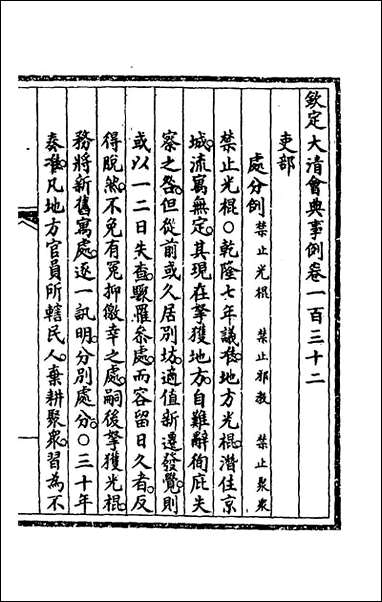 欽定大清會典事例卷一百三十二
吏部
處分例 禁止光棍 禁止邪教 禁止聚衆
禁止光棍○乾隆七年議准地方光棍潛住京
城流寓無定其現在拏獲地方自難辭徇庇失
察之咎但從前或久居別坊適值新遷發覺則
或以一二日失查驟罹叅處而容留日久者反
得脫然不免有冤抑徼幸之處嗣後拏獲光棍
務將新舊寓處逐一訊明分別處分○三十年
奏准凡地方官員所轄民人棄耕聚衆習為不